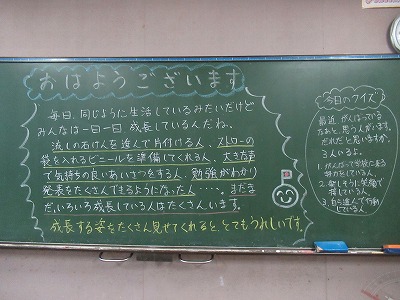 おはようございます
毎日、同じように生活しているみたいだけど
みんなは一日一日成長しているんだね。
流しの石けんを進んで片付ける人、ストローの
袋を入れるビニールを準備してくれる人、大きな声
で気持ちの良いあいさつをする人、勉強がわかり
発表をたくさんできるようになった人・・・・。まだま
だ、いろいろ成長している人はたくさんいます。
成長する姿をたくさん見せてくれると、とてもうれしいです。
今日のクイズ
最近 がんばっている
なあと、思う人がいます。
だれだと思いますか。
3人いるよ。
1. がんばって学校に来る
努力をしている人。
2. 楽しそうに笑顔で
話している人。
3. 自ら進んで行動
している人。